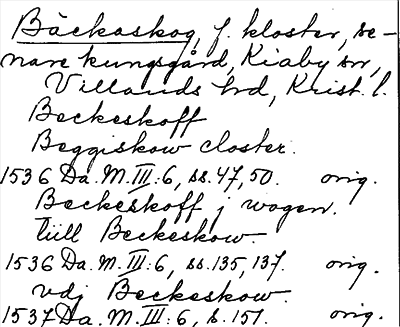 Bäckaskog, f. kloster, se-
nare kungsgård, Kiaby sn,
Villands hd, Krist. l.
Beckeskoff
Beggiskow closter.
1536 Da. M. III: 6, ss. 47, 50. orig.
Beckeskoff j wogen.
tüll Beckeskow.
1536 Da. M. III: 6, ss. 135, 137. orig.
vdj Beckeskow.
1537 Da. M. III: 6, s. 151. orig.